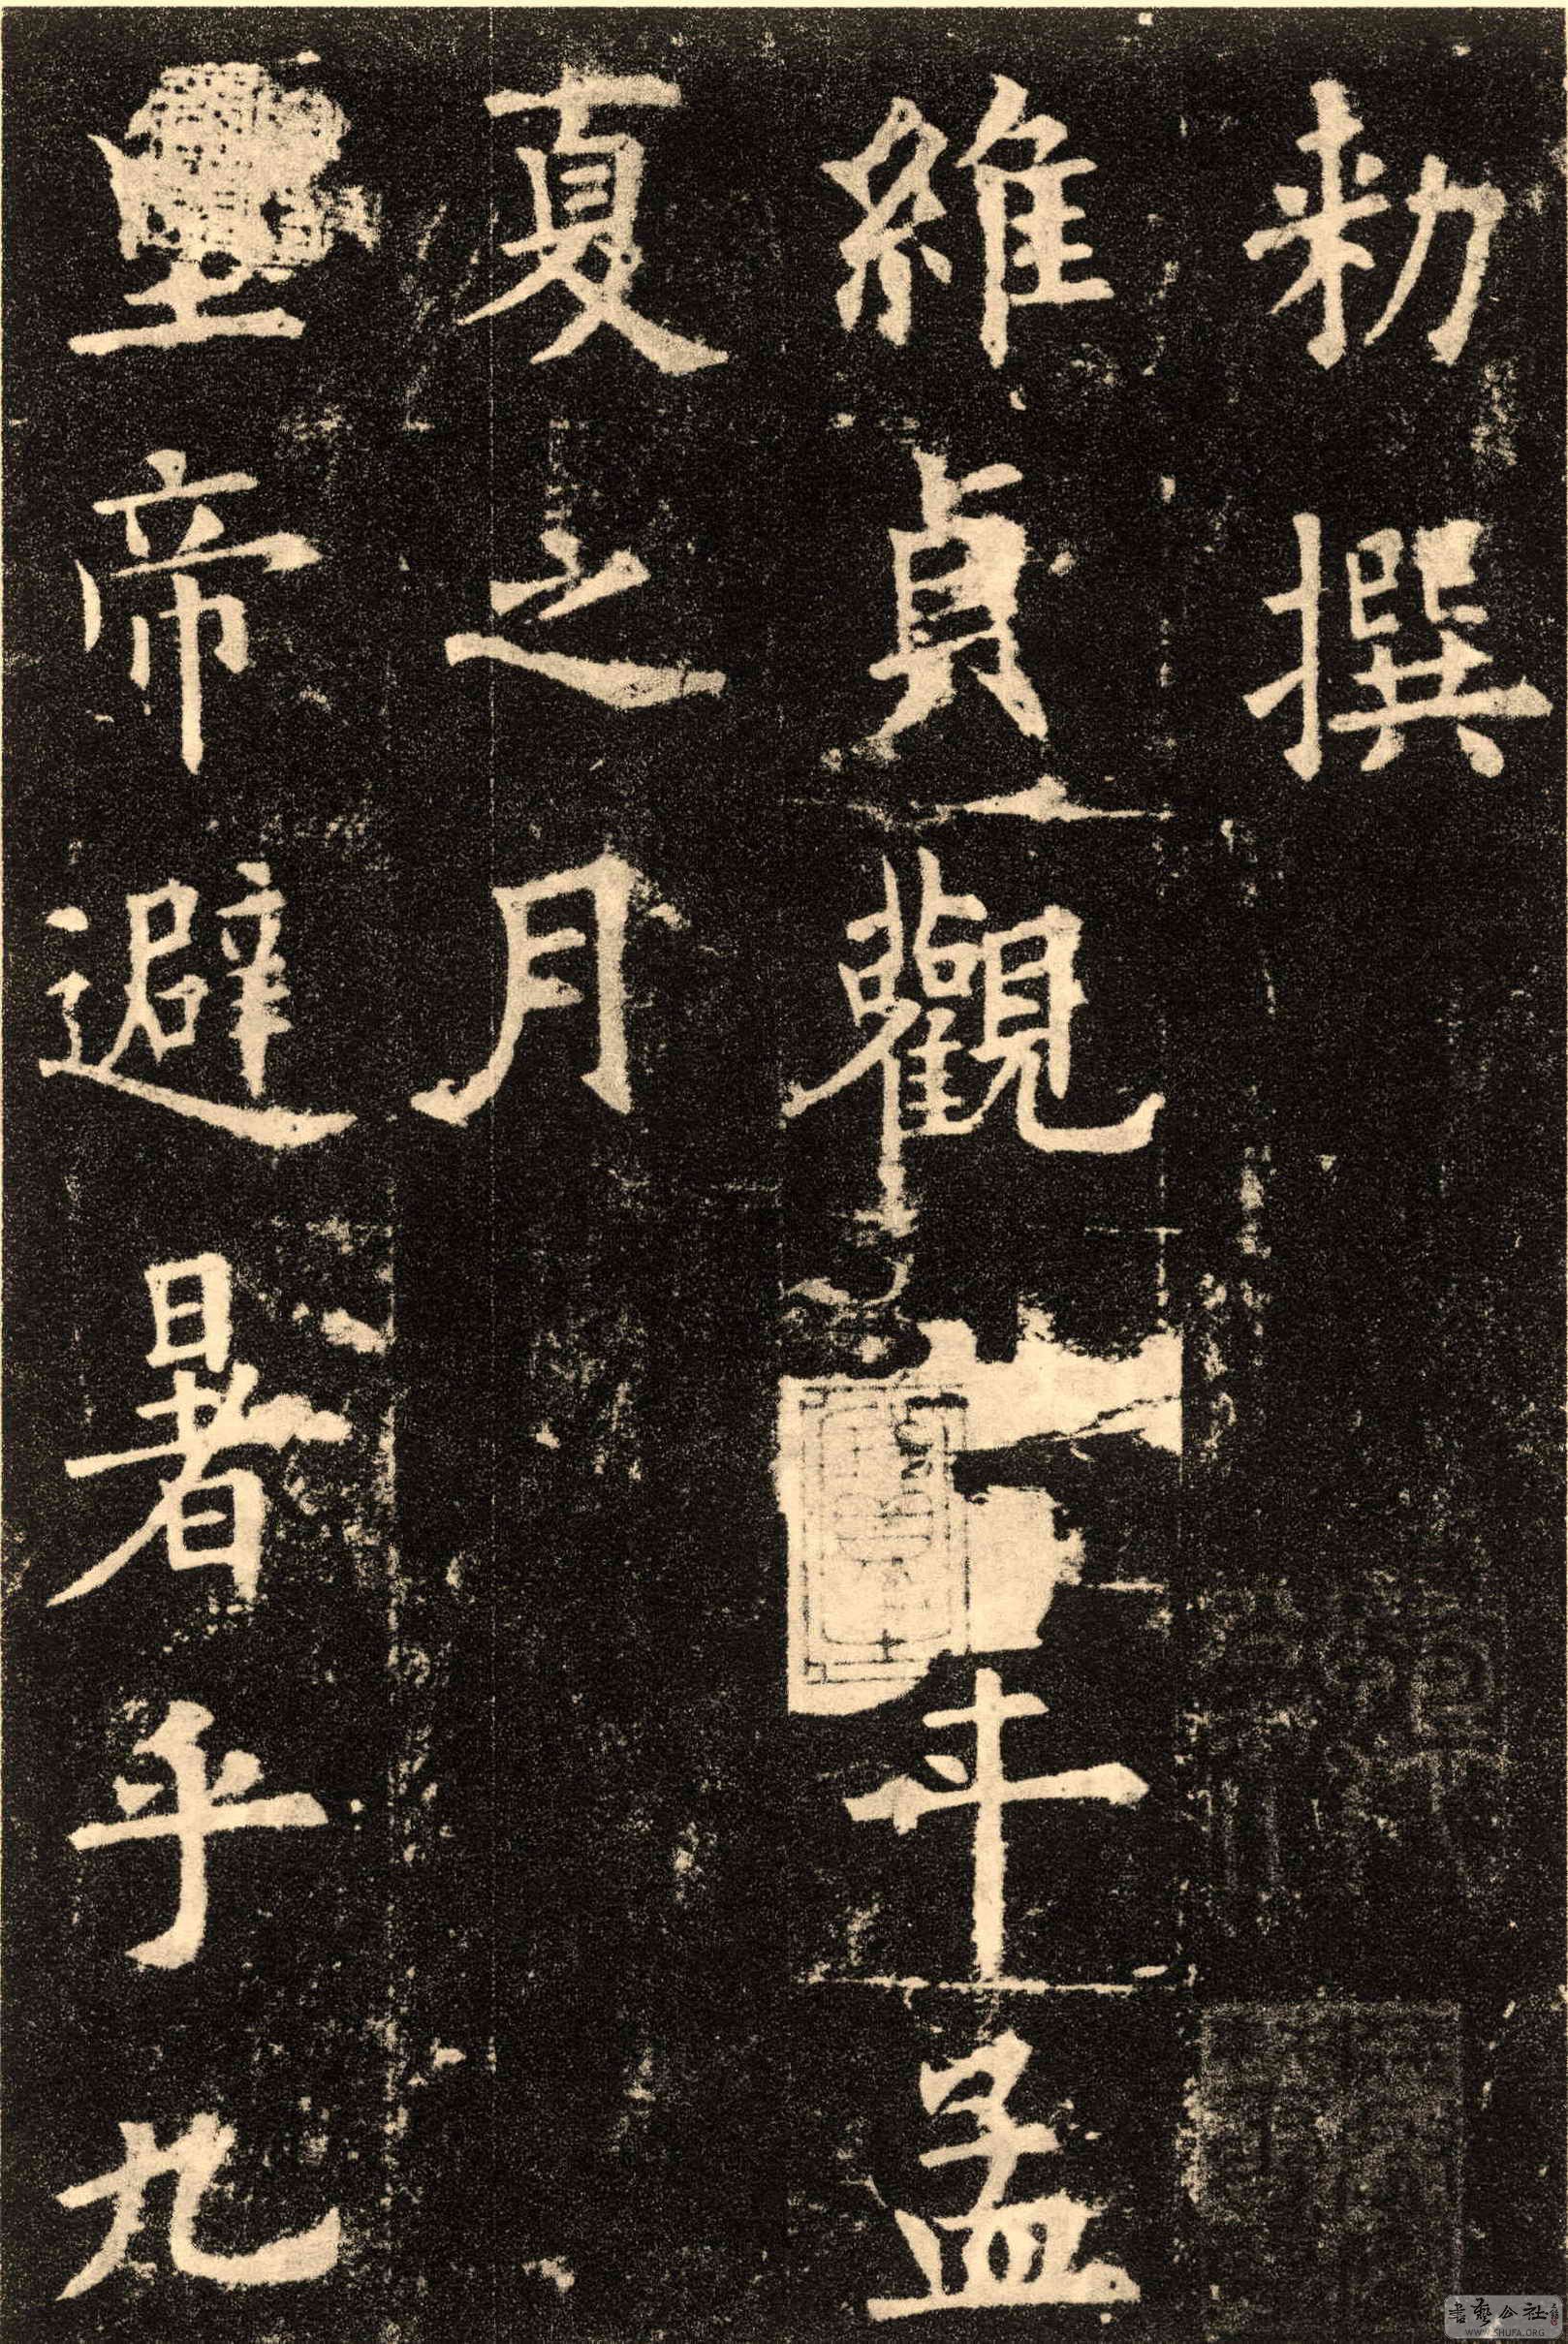 勑撰
維貞觀年孟
夏之月
皇帝避暑乎九
書藝公社
WWW.SHUFA.ORG